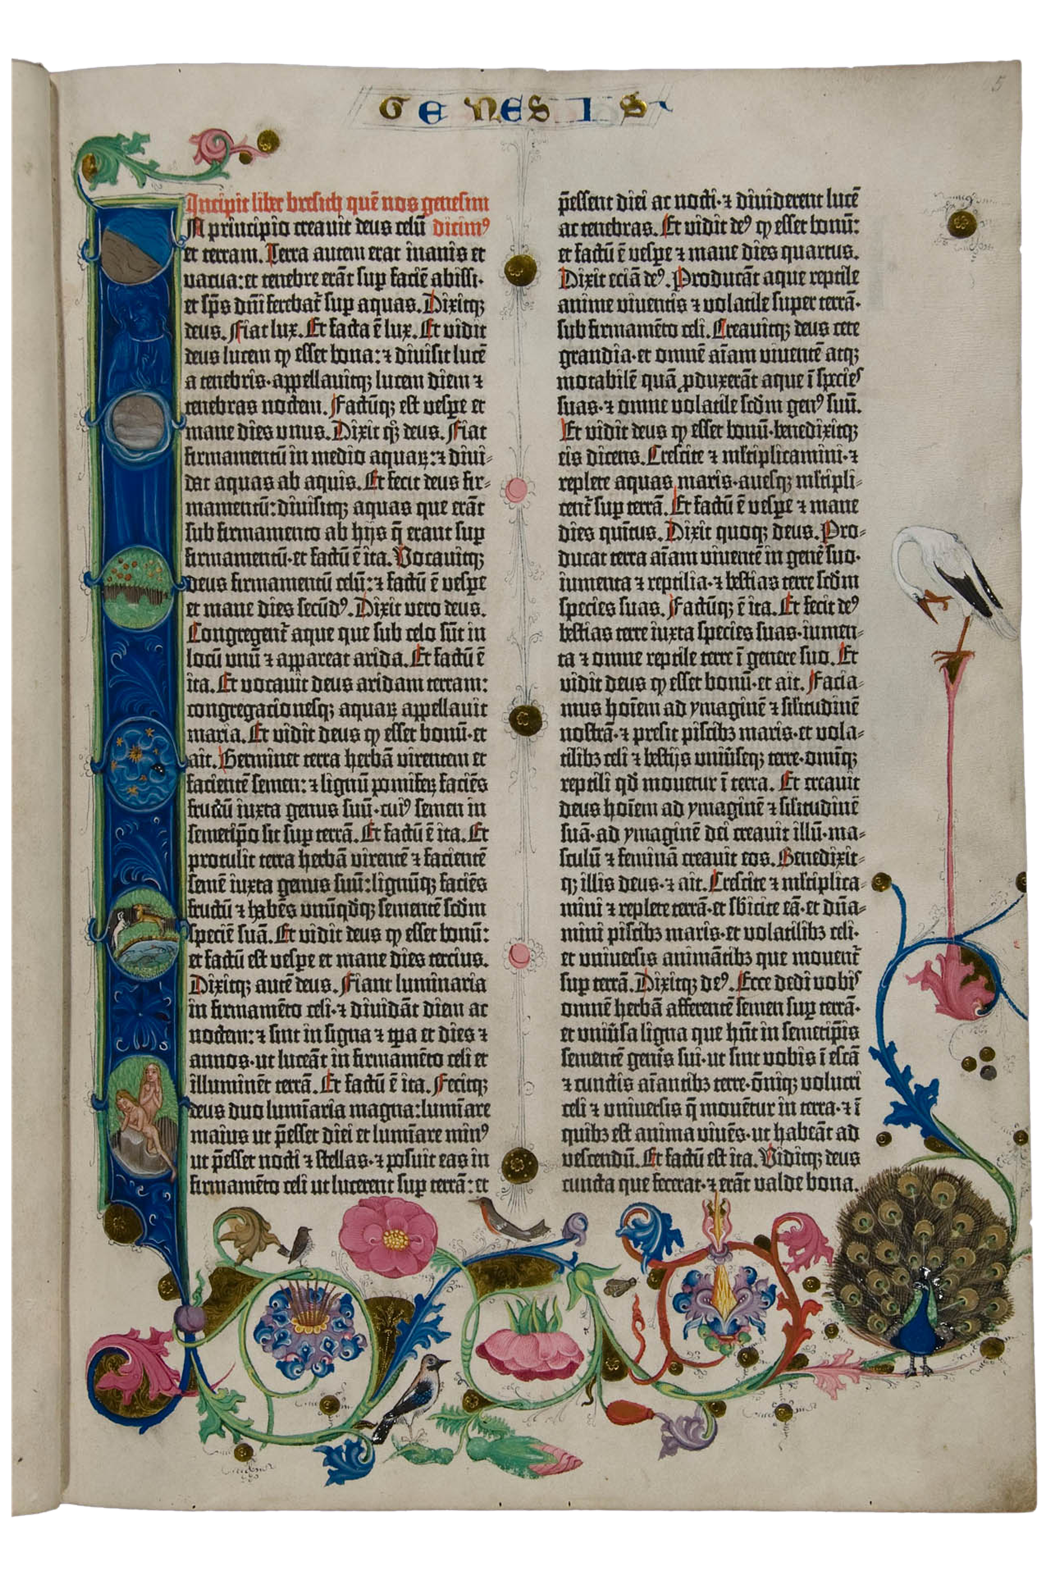 GENESIS
5
Incipit liber bresith quē nos genesim
In principio creavit deus celū dicimꝰ
et terram. Terra autem erat inanis et
vacua: et tenebre erāt sup faciē abissi·
et sp̄s dn̄i ferebat᷑ sup aquas. Dixitqꝫ
deus. Fiat lux. Et facta ē lux. Et vidit
deus lucem ꝙ esset bona: ⁊ divisit lucē
a tenebris· appellavitqꝫ lucem diem ⁊
tenebras noctem. Factūqꝫ est vespe et
mane dies vnus. Dixit qꝫ deus. Fiat
firmamentū in medio aquaꝝ: ⁊ divi-
dat aquas ab aquis. Et fecit deus fir-
mamentū: divisitqꝫ aquas que erāt
sub firmamento ab hijs q̄ erant sup
firmamentū· et factū ē ita. Vocavitqꝫ
deus firmamentū celū: ⁊ factū ē vespe
et mane dies secūdꝰ. Dixit vero deus.
Congregent᷑ aque que sub celo sūt in
locū vnū ⁊ appareat arida. Et factū ē
ita. Et vocavit deus aridam terram:
congregacionesqꝫ aquaꝝ appellavit
maria. Et vidit deus ꝙ esset bonū· et
ait. Germinet terra herbā virentem et
facientē semen: ⁊ lignū pomiferꝫ faciēs
fructū iuxta genus suū· cuiꝰ semen in
semetip̄o sit sup terrā. Et factū ē ita. Et
protulit terra herbā virentē ⁊ facientē
semē iuxta genus suū: lignūqꝫ faciēs
fructū ⁊ habēs vnūqdqꝫ sementē scd̄m
speciē suā. Et vidit deus ꝙ esset bonū:
et factū est vespe et mane dies tercius.
Dixitqꝫ autē deus. Fiant luminaria
in firmamēto celi· ⁊ dividāt diem ac
noctem: ⁊ sint in signa ⁊ tp̄a et dies ⁊
annos· ut luceāt in firmamēto celi et
illuminēt terrā. Et factū ē ita. Fecitqꝫ
deus duo lumīaria magna: lumīare
maius ut p̄esset diei et lumīare minꝰ
ut p̄esset nocti ⁊ stellas· ⁊ posuit eas in
firmamēto celi ut lucerent sup terrā: et
p̄essent diei ac nocti· ⁊ dividerent lucē
ac tenebras. Et vidit deꝰ ꝙ esset bonū:
et factū ē vespe ⁊ mane dies quartus.
Dixit eciā deꝰ. Producāt aque reptile
anime viventis ⁊ volatile super terrā·
sub firmamēto celi. Creavitqꝫ deus cete
grandia· et omnē aīam viventē atqꝫ
motabilē quā ꝓduxerāt aque ī species
suas· ⁊ omne volatile scd̄m genꝰ suū.
Et vidit deus ꝙ esset bonū· benedixitqꝫ
eis dicens. Crescite ⁊ mltiplicamini· ⁊
replete aquas maris· avesqꝫ mltipli-
cent᷑ sup terrā. Et factū ē vespe ⁊ mane
dies quītus. Dixit quoqꝫ deus. Pro-
ducat terra aīam viventē in genē suo·
iumenta ⁊ reptilia· ⁊ bestias terre scd̄m
species suas. Factūqꝫ ē ita. Et fecit deꝰ
bestias terre iuxta species suas· iumen-
ta ⁊ omne reptile terre ī genere suo. Et
vidit deus ꝙ esset bonū· et ait. Facia-
mus hoīem ad ymaginē ⁊ silitudinē
nostrā· ⁊ presit piscibꝫ maris· et vola-
tilibꝫ celi ⁊ bestijs vniūseqꝫ terre· omīqꝫ
reptili qd̄ movetur ī terra. Et creavit
deus hoīem ad ymaginē ⁊ silitudinē
suā· ad ymaginē dei creavit illū· ma-
sculū ⁊ feminā creavit eos. Benedixit-
qꝫ illis deus· ⁊ ait. Crescite ⁊ mltiplica-
mini ⁊ replete terrā· et sbicite eā· et dn̄a-
mini piscibꝫ maris· et volatilibꝫ celi·
et vniversis animātibꝫ que movent᷑
sup terrā. Dixitqꝫ deꝰ. Ecce dedi vobis
omnē herbā afferentē semen sup terrā·
et vniūsa ligna que hn̄t in semetip̄is
sementē genis sui· ut sint vobis ī escā
⁊ cunctis aīantibꝫ terre· om̄iqꝫ volucri
celi ⁊ vniversis q̄ movētur in terra· ⁊ ī
quibꝫ est anima vivēs· ut habeāt ad
vescendū. Et factū est ita. Viditqꝫ deus
cuncta que fecerat· ⁊ erāt valde bona.